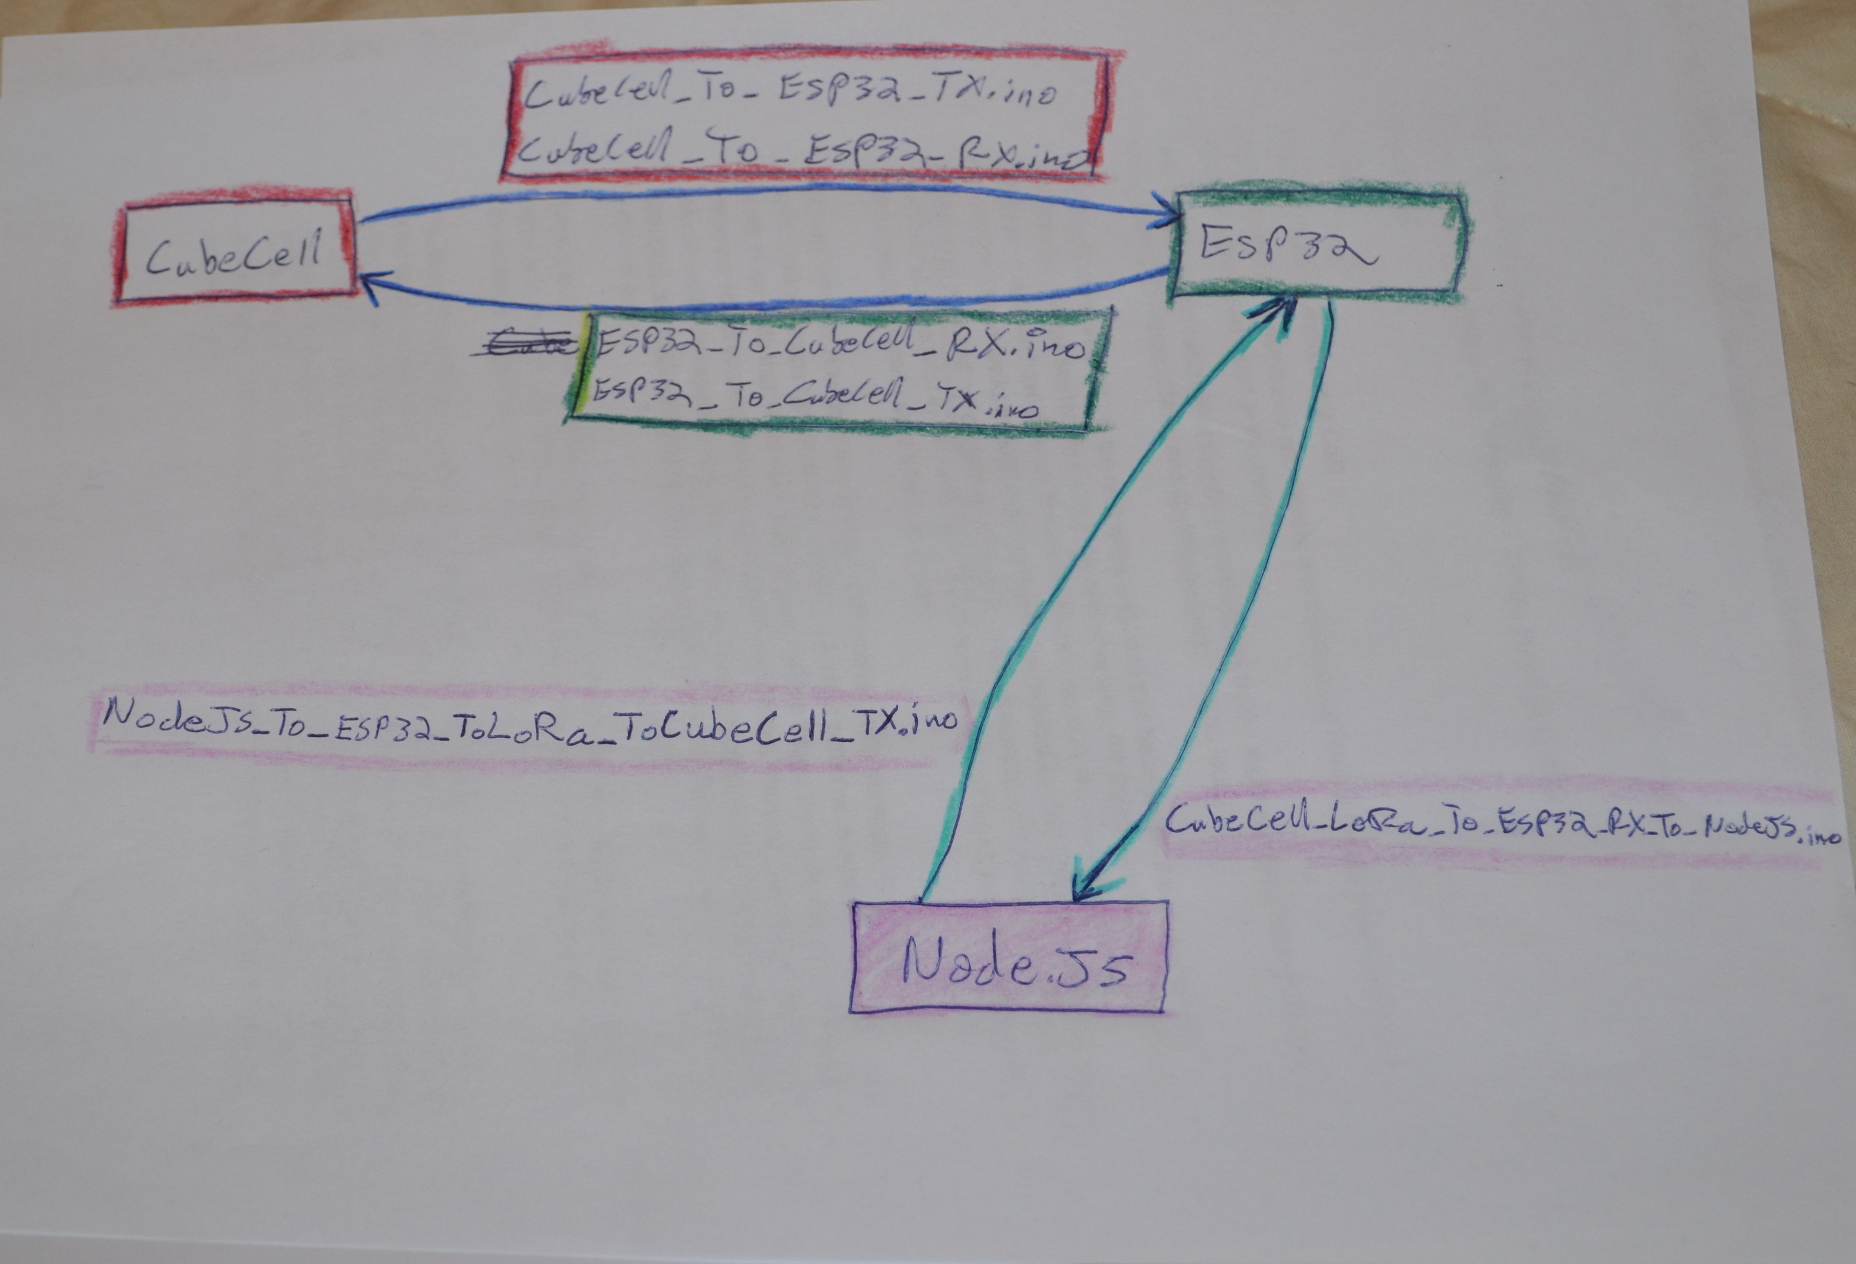 CubeCell_To_ESP32_TX.ino
CubeCell_To_ESP32_RX.ino
CubeCell
ESP32
Cube ESP32_To_CubeCell_RX.ino
ESP32_To_CubeCell_TX.ino
NodeJS_To_ESP32_ToLoRa_ToCubeCell_TX.ino
CubeCell_LoRa_To_ESP32_RX_To_NodeJS.ino
Node.JS